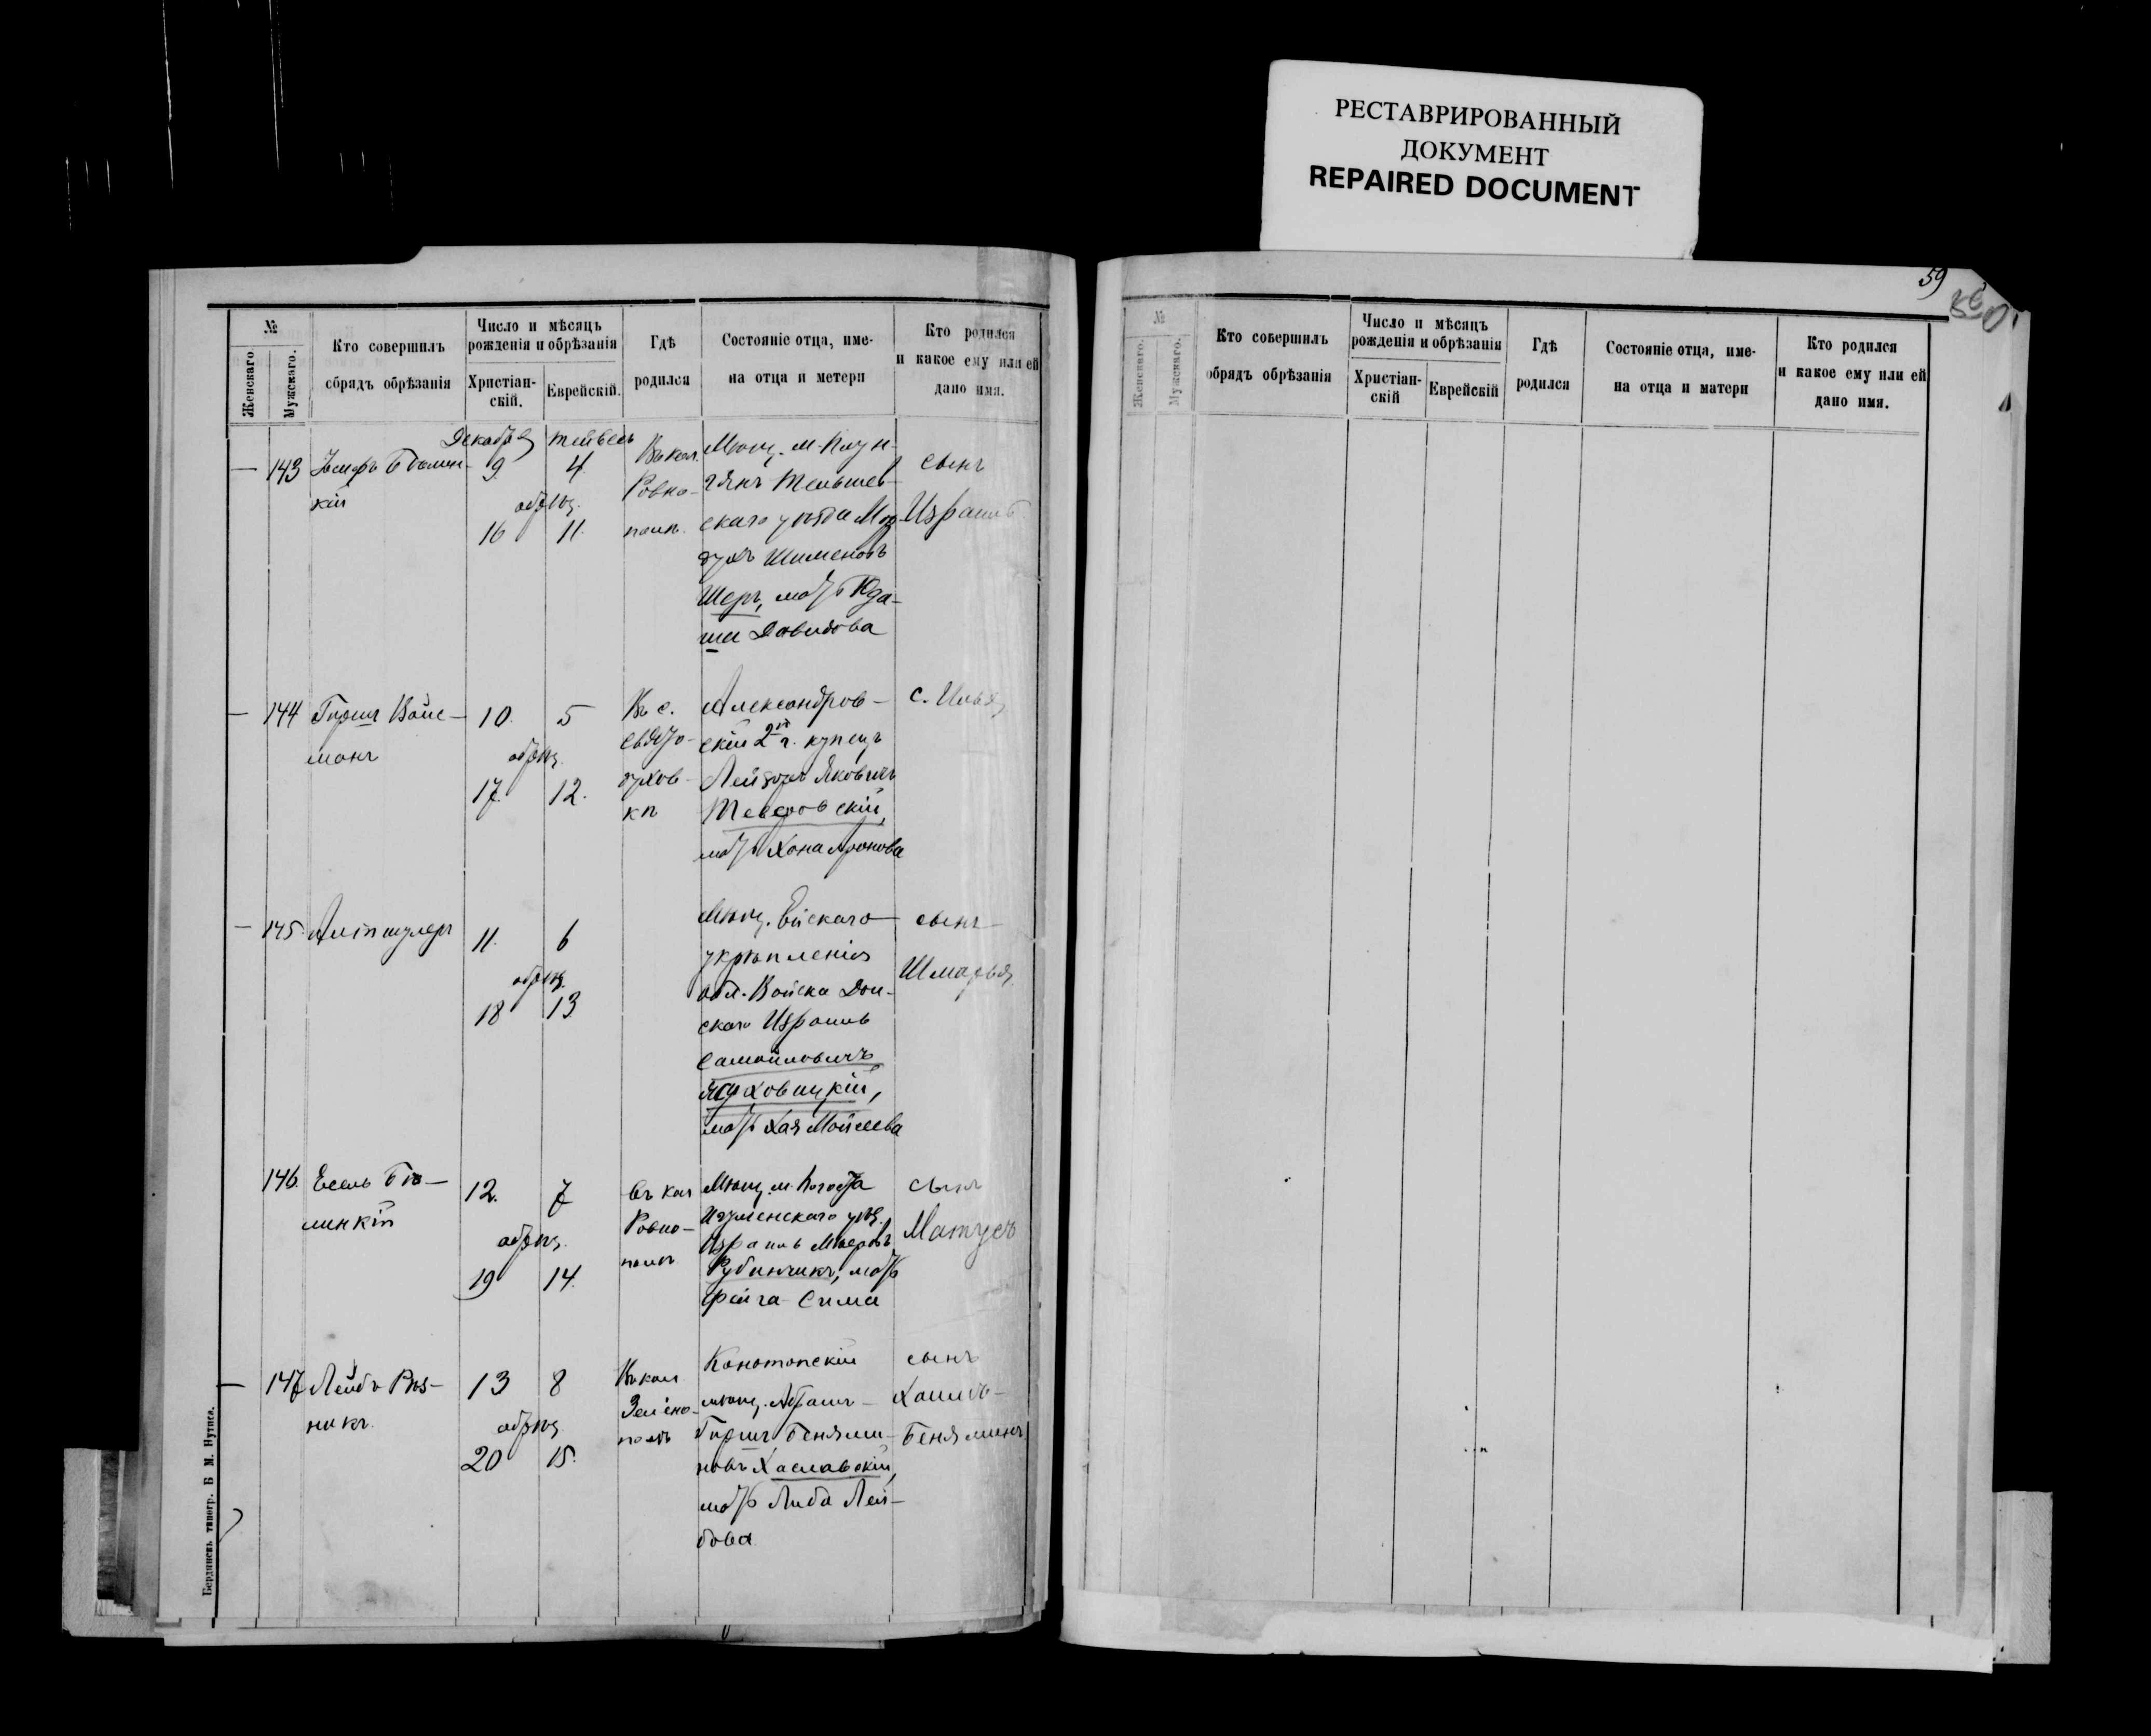 РЕСТАВРИРОВАННЫЙ
ДОКУМЕНТ
REPAIRED DOCUMENT
№
Женскаго
Мужскаго.
Кто совершилъ
обрядъ обрѣзанія
Число и мѣсяцъ
рожденія и обрѣзанія
Христіан-
скій.
Еврейскій.
Гдѣ
родился
Состояніе отца, име-
на отца и метери
Кто родился
и какое ему или ей
дано имя.
Декабрь Тейвесъ
— 143
кій
9 4
обрѣз.
16 11.
Въ кол.
Ровно-
поль.
Мѣщ. м.
Тельшев-
скаго уѣзда Мор-
духъ Шименовъ
Шеръ, мать Юда-
ша Давидова
сынъ
Израиль
— 144
Гиршъ Вайс-
манъ
10. 5
обрѣз.
17. 12.
Въ с.
Свято-
духов-
кѣ
Александров-
скій 2й г. купецъ
Лейзеръ Яковичъ
мать Хана Аронова
с. Илья
— 145.
Альтшулеръ
11. 6
обрѣз.
18 13
Мѣщ. Ейскаго
укрѣпленія
обл. Войска Дон-
скаго Израиль
Самойловичъ
мать Хая Мойсеева
сынъ
Шмарья
146.
Есель Бѣ-
линкій
12. 7
обрѣз.
19 14.
Въ кол
Ровно-
поль
Мѣщ. м. Погоста
Игуменскаго уѣз.
Израиль Мееровъ
Рубинчикъ, мать
Фейга-Сима
сынъ
Матусъ
— 147
Лейба Рѣз-
никъ.
13 8
обрѣз.
20 15.
Въ кол
Зелено-
поль
Конотопскій
мѣщ. Абрамъ-
Гиршъ Беньями-
новъ Хаславскій,
мать Либа Лей-
бова
сынъ
Хаимъ-
Беньяминъ
Бердянскъ типогр. Б М. Нутиса.
59
№
Женскаго.
Мужскаго.
Кто совершилъ
обрядъ обрѣзанія
Число и мѣсяцъ
рожденія и обрѣзанія
Христіан-
скій
Еврейскій
Гдѣ
родился
Состояніе отца, име-
на отца и матери
Кто родился
и какое ему или ей
дано имя.